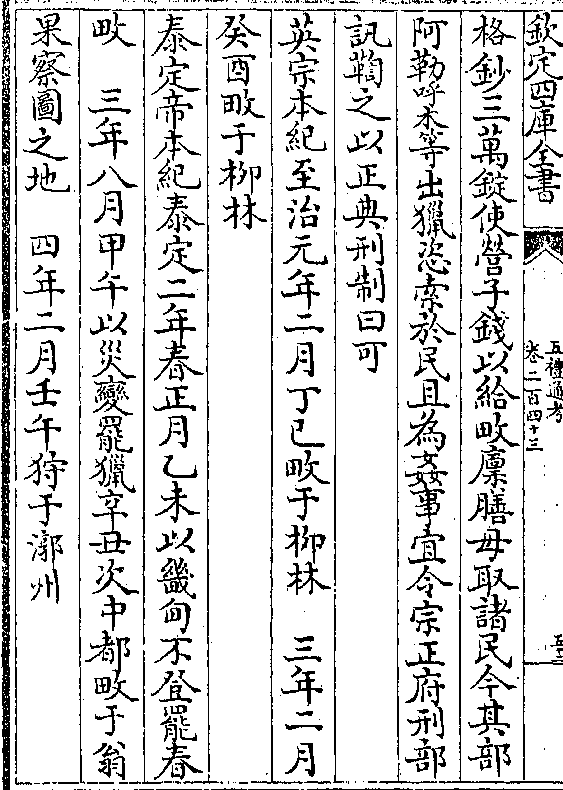 欽定四庫全書
五禮通考
卷二百四十三
格鈔三萬錠使營子錢以給畋廪膳毋取諸民今其部
阿勒呼木等出獵恣索於民且為姦事宜令宗正府刑部
訊鞫之以正典刑制曰可
英宗本紀至治元年二月丁巳畋于柳林　三年二月
癸酉畋于柳林
泰定帝本紀泰定二年春正月乙未以畿甸不登罷春
畋　三年八月甲午以災變罷獵辛丑次中都畋于翁
果察圖之地　四年二月壬午狩于漷州